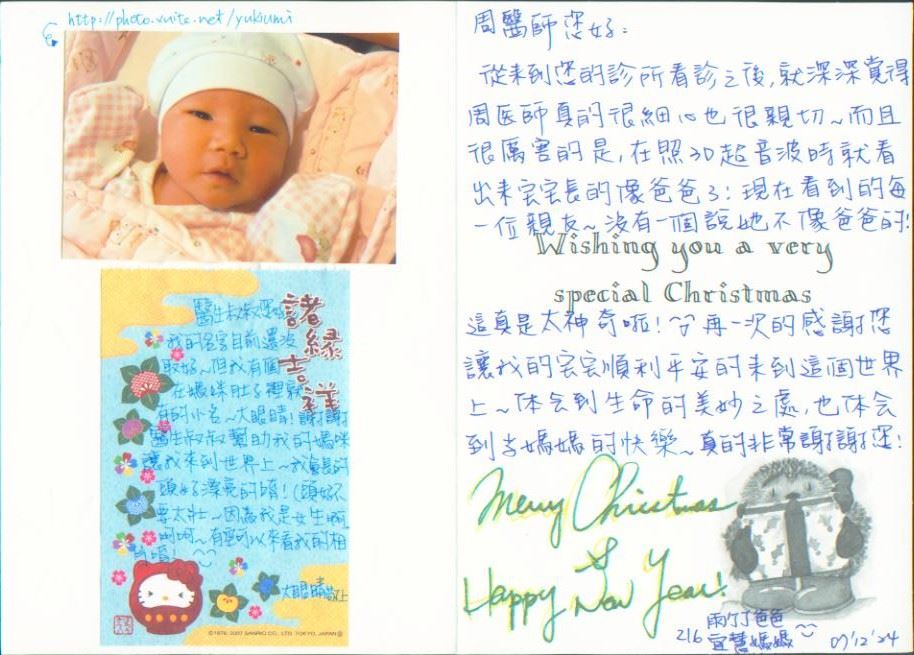 http://photo.xuite.net/yukiumi
醫生叔叔您好
諸縁吉祥
我的名字目前還沒
取好~但我有個
在媽咪肚子裡就
有的小名~大眼睛!謝謝
醫生叔叔幫助我的媽咪
讓我來到世界上~我真的
頭好漂亮的唷!(頭好不
要太壯~因為我是女生啊
呵呵~有空可以來看我的相
片唷!^^
大眼睛敬上
©1976, 2007 SANRIO CO., LTD. TOKYO, JAPAN
周醫師您好:
從來到您的診所看診之後,就深深覺得
周医師真的很細心也很親切~而且
很厲害的是,在照3D超音波時就看
出來宝宝長的像爸爸了!現在看到的每
一位親友~沒有一個說她不像爸爸的!
Wishing you a very
special Christmas
這真是太神奇啦!^^再一次的感謝您
讓我的宝宝順利平安的來到這個世界
上~体会到生命的美妙之處,也体会
到了媽媽的快樂~真的非常謝謝您!
Merry Christmas
&
Happy New Year!
爸爸
216 宜慧媽媽
07'12'24